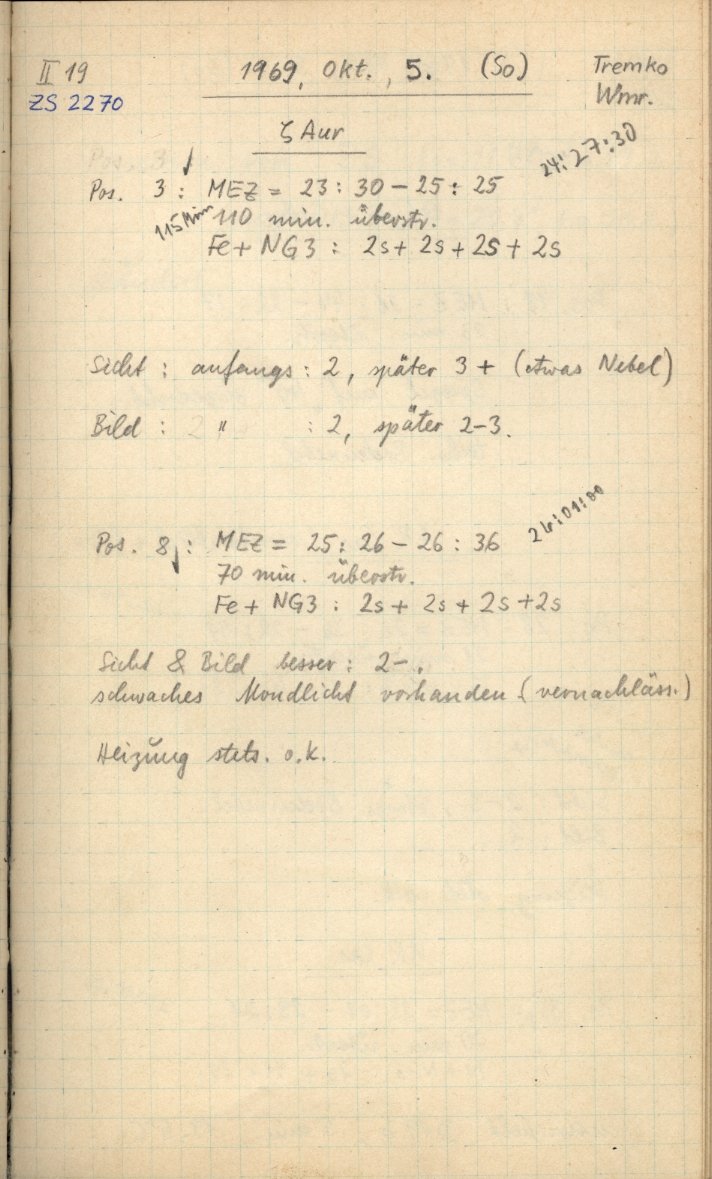 II 19 1969, Okt., 5. (So) Tremko
ZS 2270 Wmr.
ζ Aur
24:27:30
Pos. 3 : MEZ = 23 : 30 - 25 : 25
115 Min 110 min. überstr.
Fe + NG3 : 2s + 2s + 2s + 2s
Sicht : anfangs : 2, später 3 + (etwas Nebel)
Bild : " : 2, später 2-3.
26:01:00
Pos. 8 : MEZ = 25 : 26 - 26 : 36
70 min. überstr.
Fe + NG3 : 2s + 2s + 2s + 2s
Sicht & Bild besser : 2-.
schwaches Mondlicht vorhanden (vernachläss.)
Heizung stets. o.k.